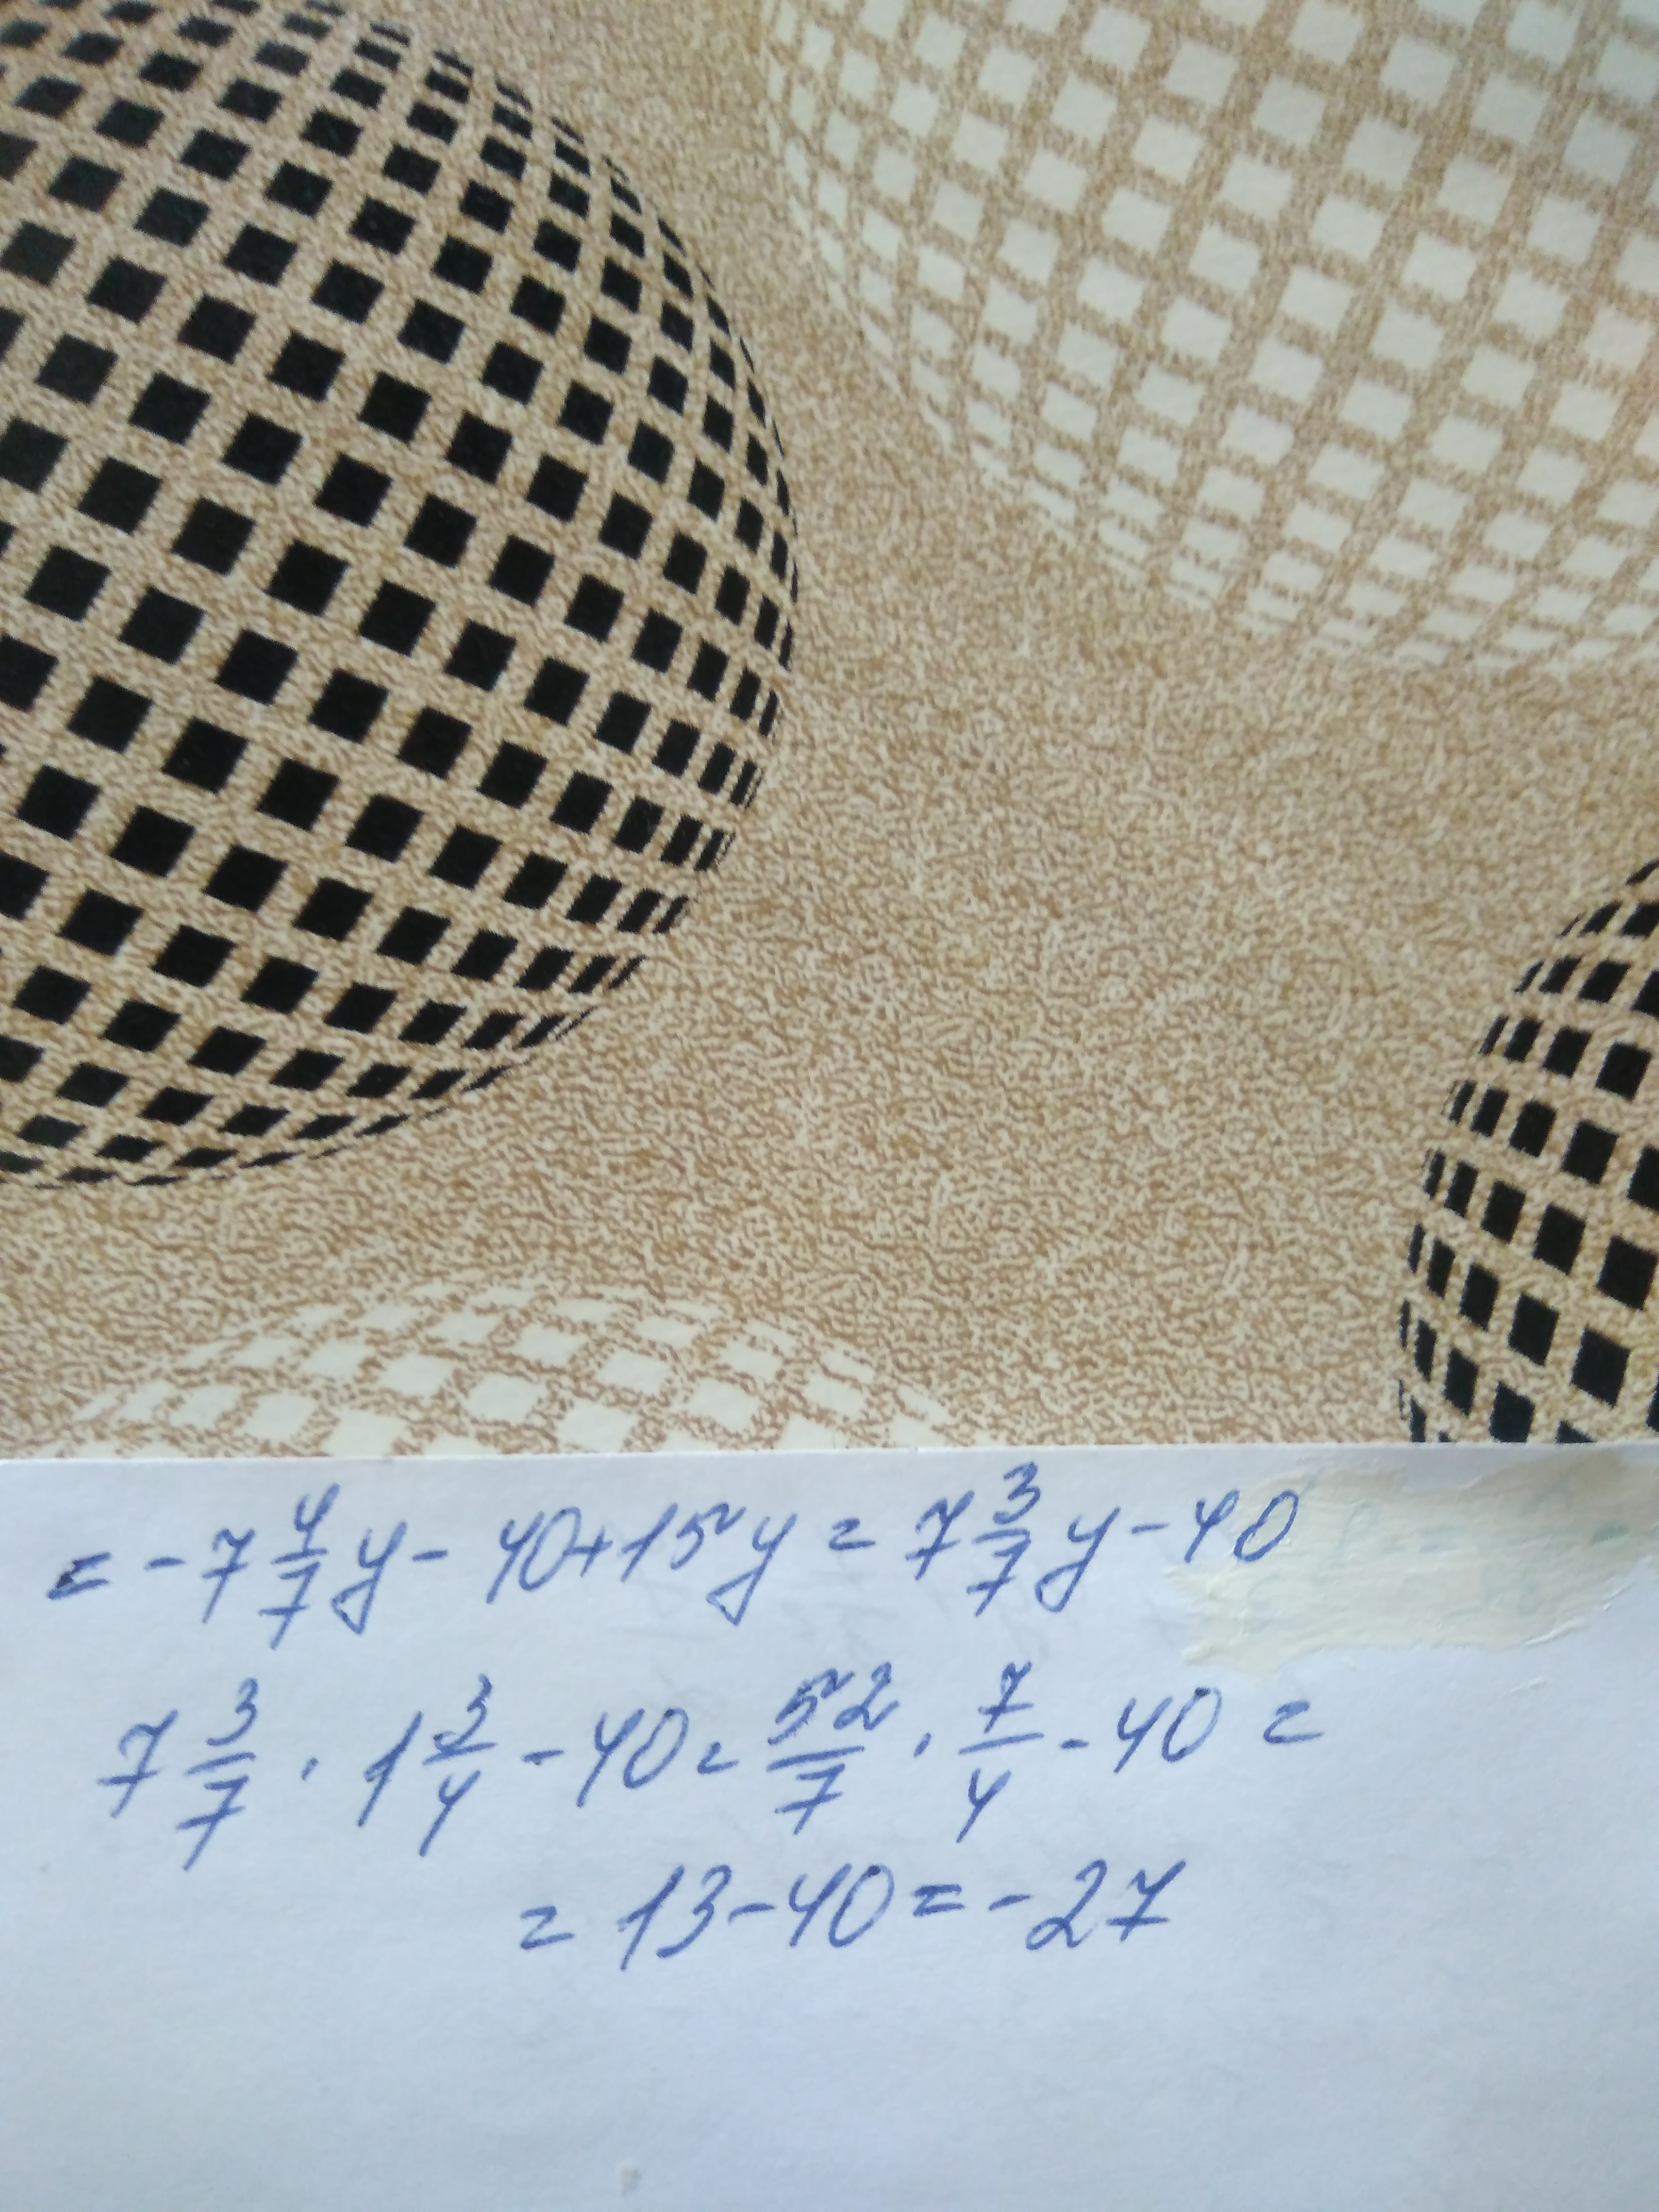 = -7 4/7 y - 40 + 15y = 7 3/7 y - 40
7 3/7 · 1 3/4 - 40 = 52/7 · 7/4 - 40 =
= 13 - 40 = -27